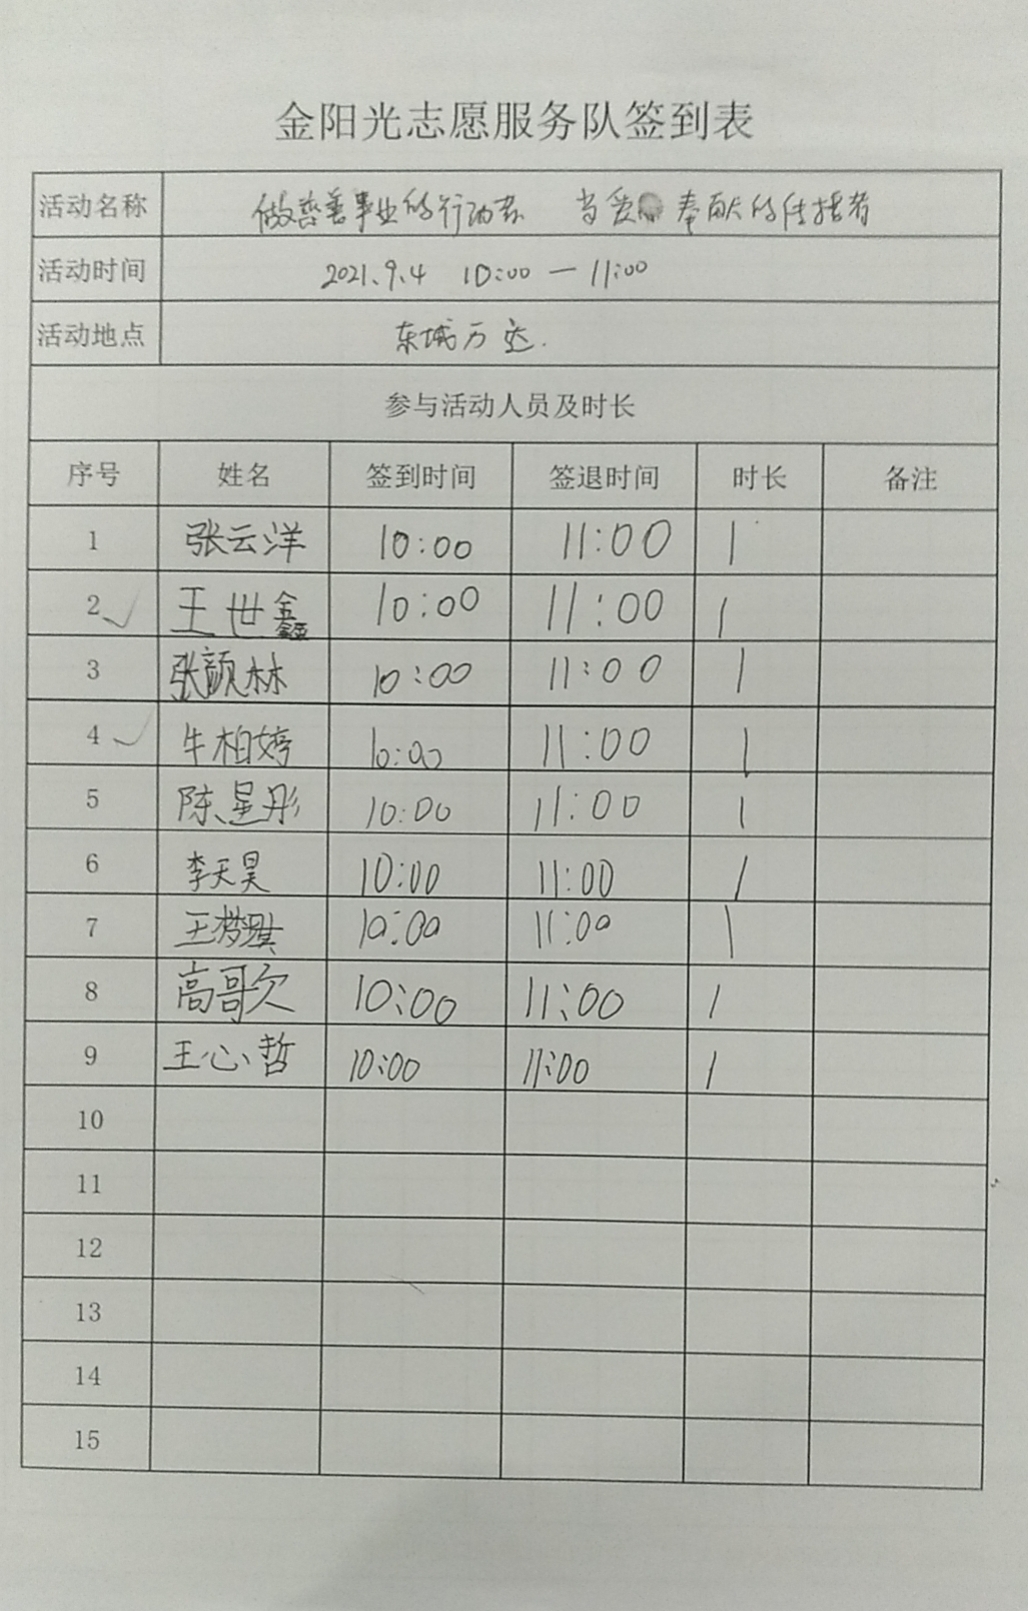 金阳光志愿服务队签到表
活动名称 做慈善事业的行动者 当爱心奉献的传播者
活动时间 2021.9.4 10:00 — 11:00
活动地点 东城万达.
参与活动人员及时长
序号 姓名 签到时间 签退时间 时长 备注
1 张云洋 10:00 11:00 1
2 王世鑫 10:00 11:00 1
3 张颜林 10:00 11:00 1
4 牛柏婷 10:00 11:00 1
5 陈星彤 10:00 11:00 1
6 李天昊 10:00 11:00 1
7 王梦琪 10:00 11:00 1
8 高歌 10:00 11:00 1
9 王心哲 10:00 11:00 1
10
11
12
13
14
15